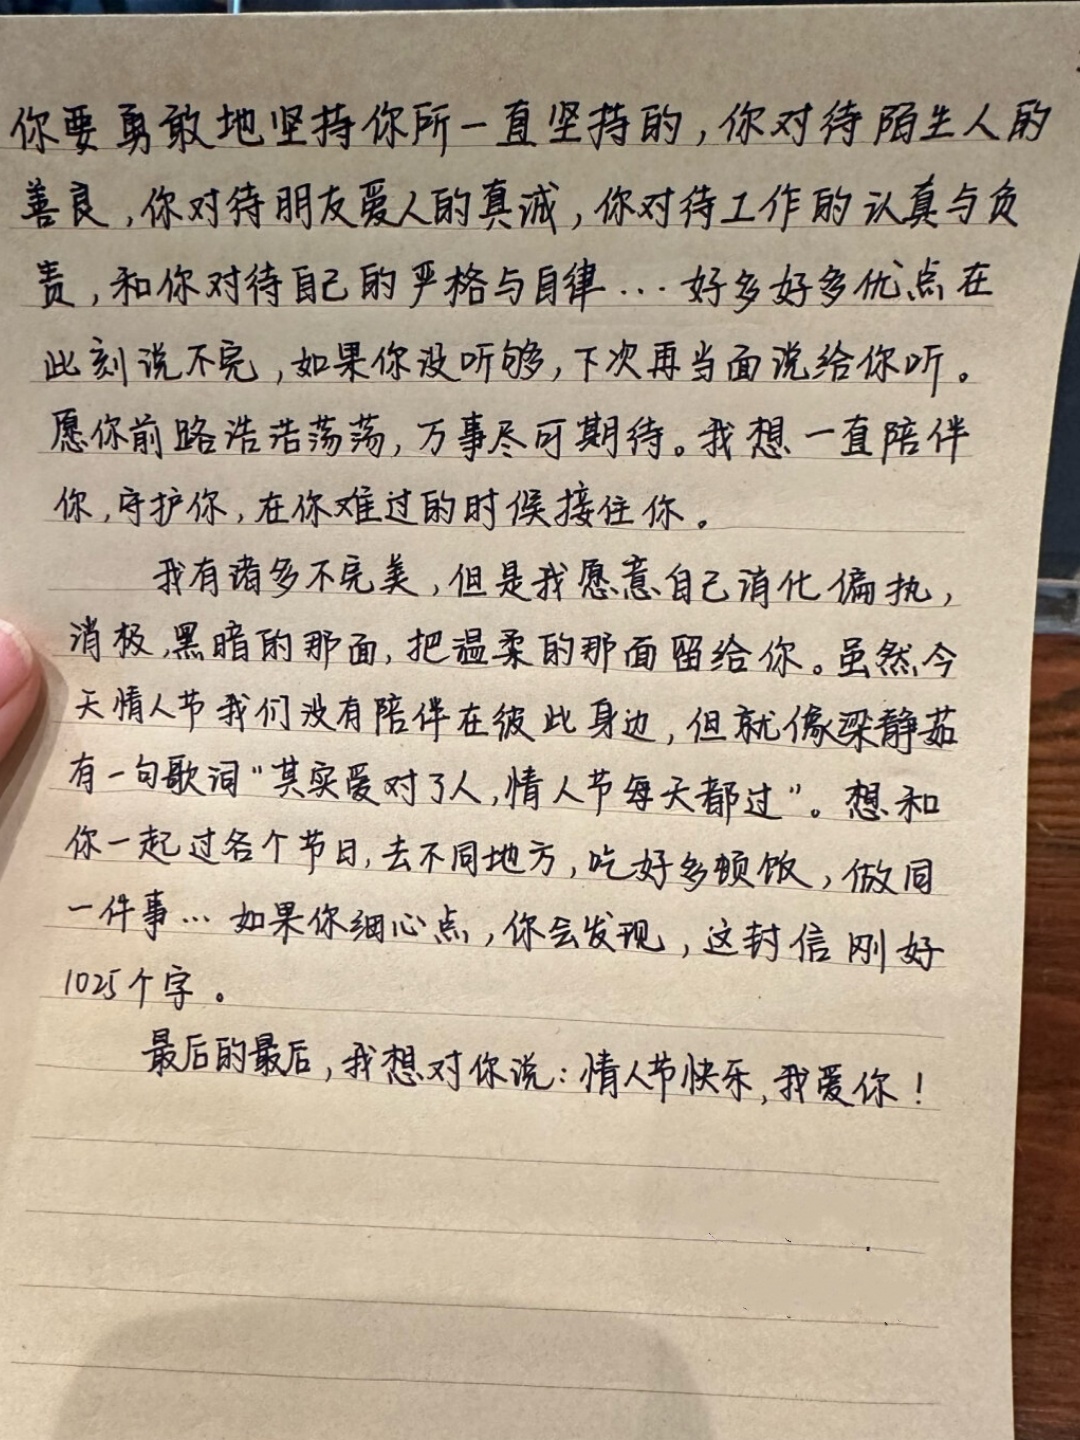 你要勇敢地坚持你所一直坚持的,你对待陌生人的
善良,你对待朋友爱人的真诚,你对待工作的认真与负
责,和你对待自己的严格与自律...好多好多优点在
此刻说不完,如果你没听够,下次再当面说给你听。
愿你前路浩浩荡荡,万事尽可期待。我想一直陪伴
你,守护你,在你难过的时候接住你。
我有诸多不完美,但是我愿意自己消化偏执,
消极,黑暗的那面,把温柔的那面留给你。虽然今
天情人节我们没有陪伴在彼此身边,但就像梁静茹
有一句歌词“其实爱对了人,情人节每天都过”。想和
你一起过各个节日,去不同地方,吃好多顿饭,做同
一件事...如果你细心点,你会发现,这封信刚好
1025个字。
最后的最后,我想对你说:情人节快乐,我爱你!